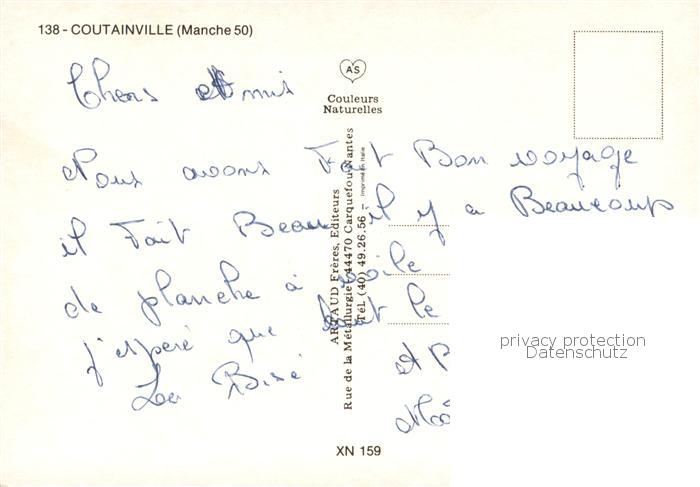 138 - COUTAINVILLE (Manche 50)
AS
Couleurs
Naturelles
Chers Amis
Nous avons Fait Bon voyage
il Fait Beau il y a Beaucoup
de planche à voile
j'esperé que tout le
XN 159
ARTAUD Frères, Editeurs
Rue de la Métallurgie - 44470 Carquefou-Nantes
Tél. (40) 49.26.56 - Imprimé en Italie
privacy protection
Datenschutz